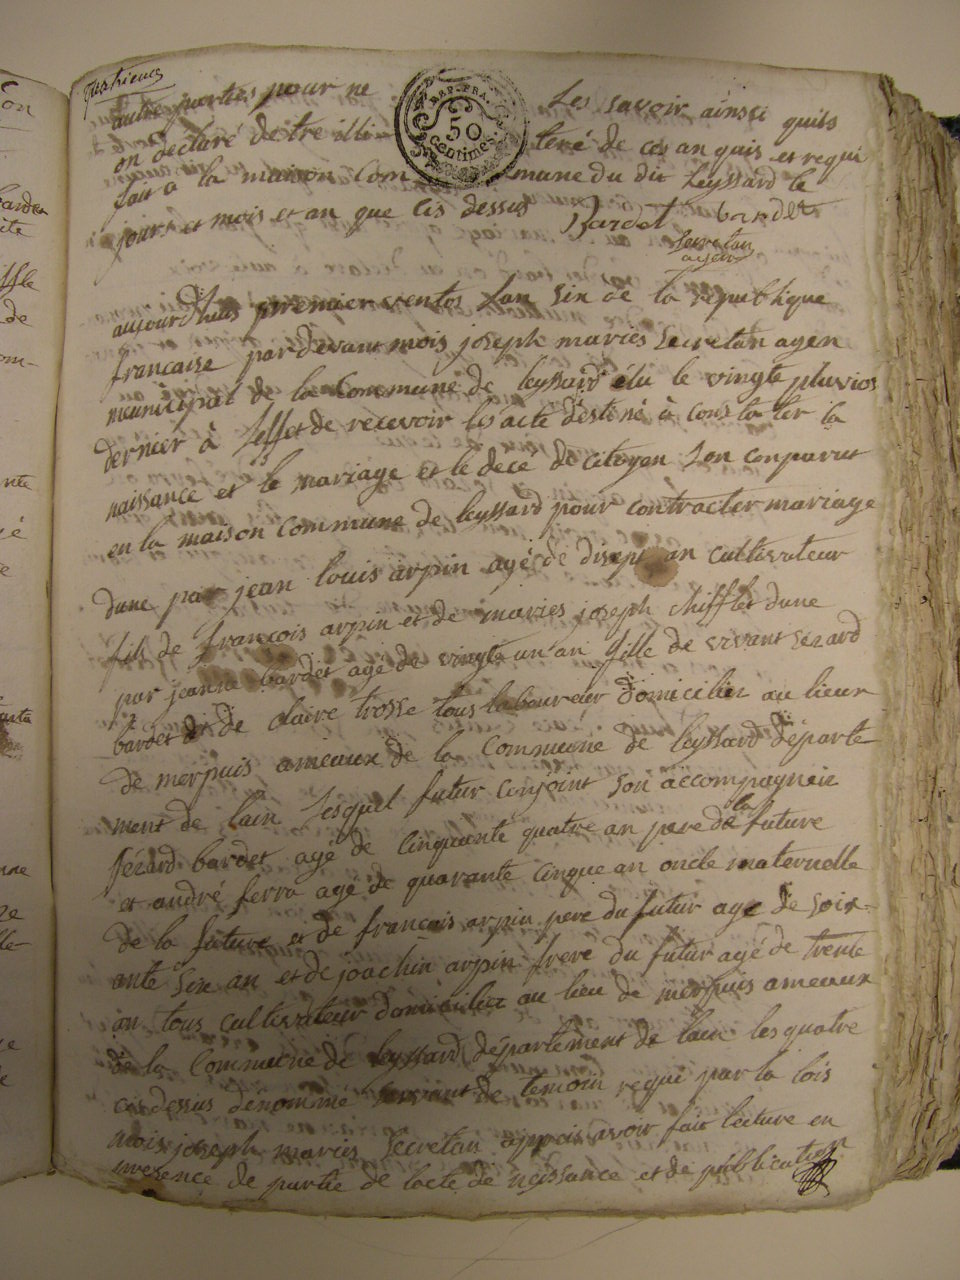 autre parties pour ne les savoir ainsi quils
on declaré detre illi teré de ces an quis et requi
fait a la maison com mune du dit leyssard le
jours et mois et an que cis dessus Bardet bardet
secretan
agent
REP. FRA.
50
centimes.
aujourdhuis premier ventos lan six de la republique
francaise pardevant mois joseph maries secretan agen
municipal de la commune de leyssard élu le vingte pluvios
dernier à leffet de recevoir les acte destiné à constater la
naissance et le mariage et le dece de citoyen son conparut
en la maison commune de leyssard pour contracter mariage
dune par jean louis arpin agé de disept an cultivateur
fils de francois arpin et de maries joseph chifflet dune
par jeanne bardet agé de vingte un an fille de vivant sezard
bardet et de claire trosse tous laboureur domicilier au lieux
de merpuis ameaux de la commune de leyssard départe
ment de lain lesquel futur conjoint son accompagneie
sezard bardet agé de cinquante quatre an pere de la future
et andré ferra agé de quarante cinque an oncle maternelle
de la future et de francois arpin pere du futur age de soix-
ante six an et de joachin arpin frere du futur agé de trente
an tous cultivateur domicilier au lieu de merpuis ameaux
de la commune de leyssard département de lain les quatre
cis dessus dénommé servant de temoin requi par la lois
mois joseph maries secretan apprais avoir fait lecture en
presence de partie de lacte de naissance et de publication